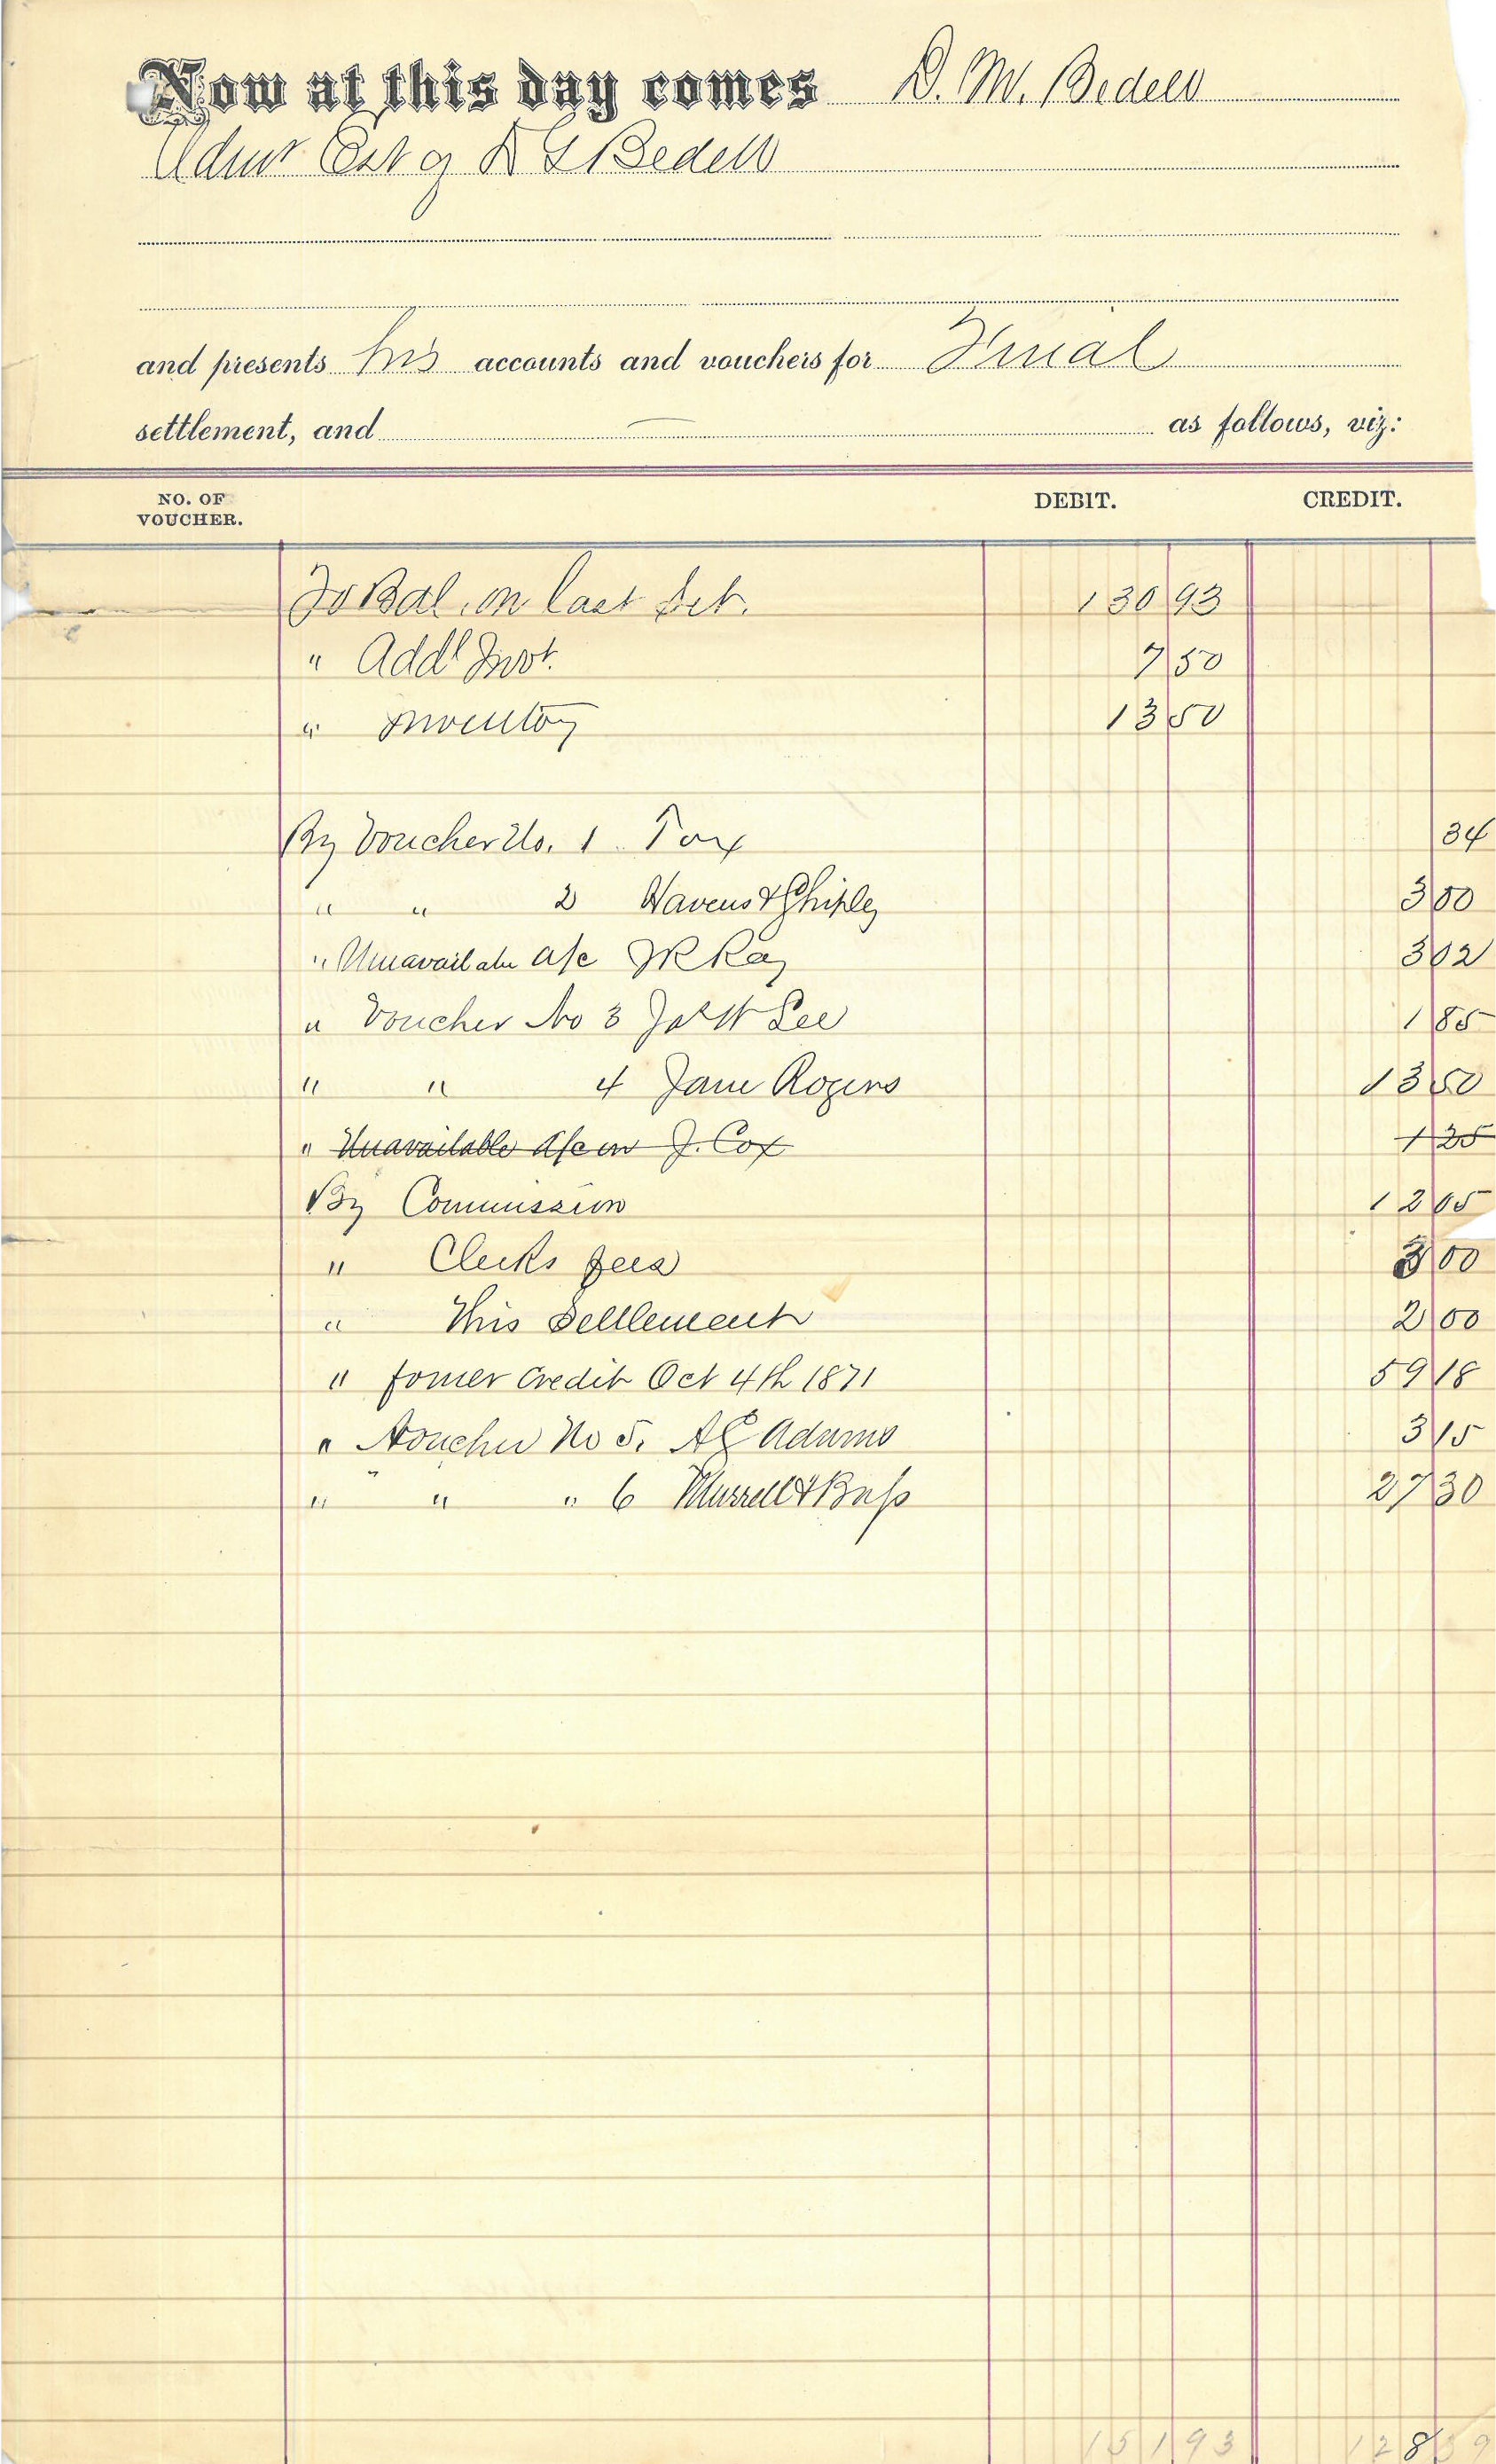 Now at this day comes D. M. Bedell
Admr Est of D G Bedell
and presents his accounts and vouchers for Final
settlement, and as follows, viz:
NO. OF VOUCHER. DEBIT. CREDIT.
To Bal. on last Set. 130 93
" Addl Invt. 7 50
" Inventory 13 50
By Voucher No. 1 Tax 34
" " 2 Havens & Shipley 3 00
" Unavailable a/c J R Ray 3 02
" Voucher No 3 Jas W Lee 1 85
" " 4 Jane Rogers 13 50
" Unavailable a/c on J. Cox 1 25
By Commission 12 05
" Clerks fees 3 00
" This Settlement 2 00
" fomer Credit Oct 4th 1871 59 18
" Voucher No 5. A C Adams 3 15
" " " 6 Murrell & Bass 27 30
151 93 128 39